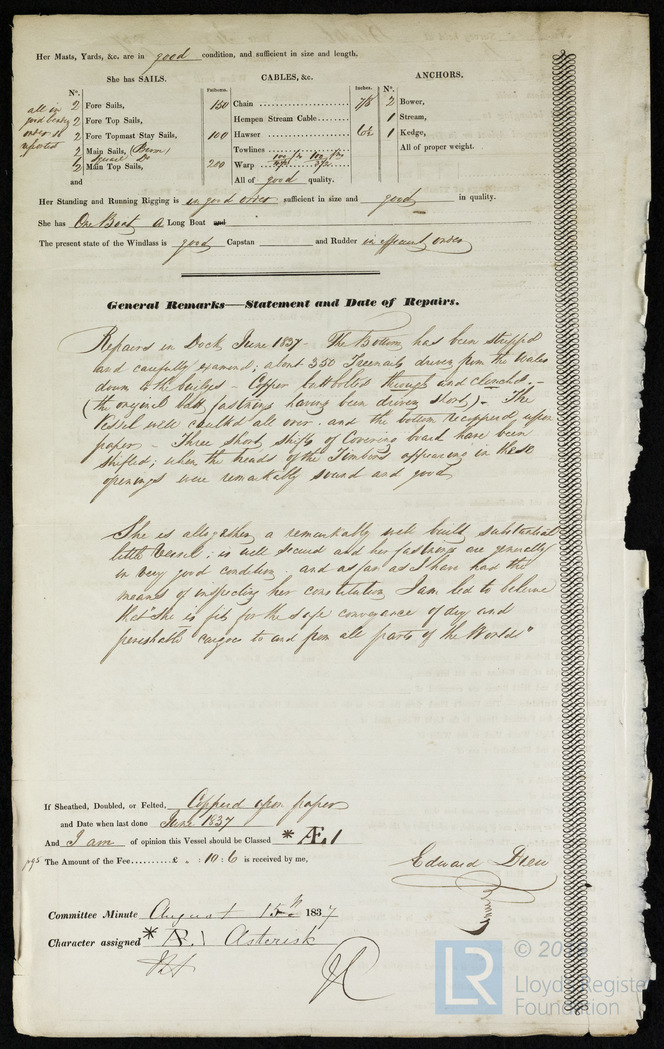 Her Masts, Yards, &c. are in good condition, and sufficient in size and length.
She has SAILS.
CABLES, &c.
ANCHORS.
Nº.
Fathoms.
Inches.
Nº.
all in
good order
reported
2 Fore Sails,
150 Chain 7/8
2 Bower,
2 Fore Top Sails,
Hempen Stream Cable
1 Stream,
2 Fore Topmast Stay Sails,
100 Hawser 6½
1 Kedge,
2 Main Sails, (Boom)
Towlines
All of proper weight.
1 Square Do
2 Main Top Sails,
200 Warp
and
All of good quality.
Her Standing and Running Rigging is in good order sufficient in size and good in quality.
She has One Boat a Long Boat and
The present state of the Windlass is good Capstan and Rudder in efficient order
General Remarks—Statement and Date of Repairs.
Repairs in Dock June 1837 - The Bottom has been stripped
and carefully examined; about 350 Treenails driven from the Wales
down to the bulges - Copper butt bolted through and clenched; -
(the original butt fastnings having been driven short) - The
Vessel well caulk'd all over. and the bottom recopperd upon
paper - Three short shifts of Covering board have been
shifted; when the heads of the Timbers appearing in these
openings were remarkably sound and good
She is altogether a remarkably well built substantial
little Vessel; is well secured and her fastnings are generally
in very good condition. and as far as I have had the
means of inspecting her constitution I am led to believe
that "she is fit for the safe conveyance of dry and
perishable cargoes to and from all parts of the World"
If Sheathed, Doubled, or Felted, Copperd upon paper
and Date when last done June 1837
And I am of opinion this Vessel should be Classed * Æ 1
The Amount of the Fee..........£ „ : 10 : 6 is received by me,
Edward Drew
Committee Minute August 15th 1837
Character assigned * Æ. 1 Asterisk
LR
© 20
Lloyd's Register
Foundation